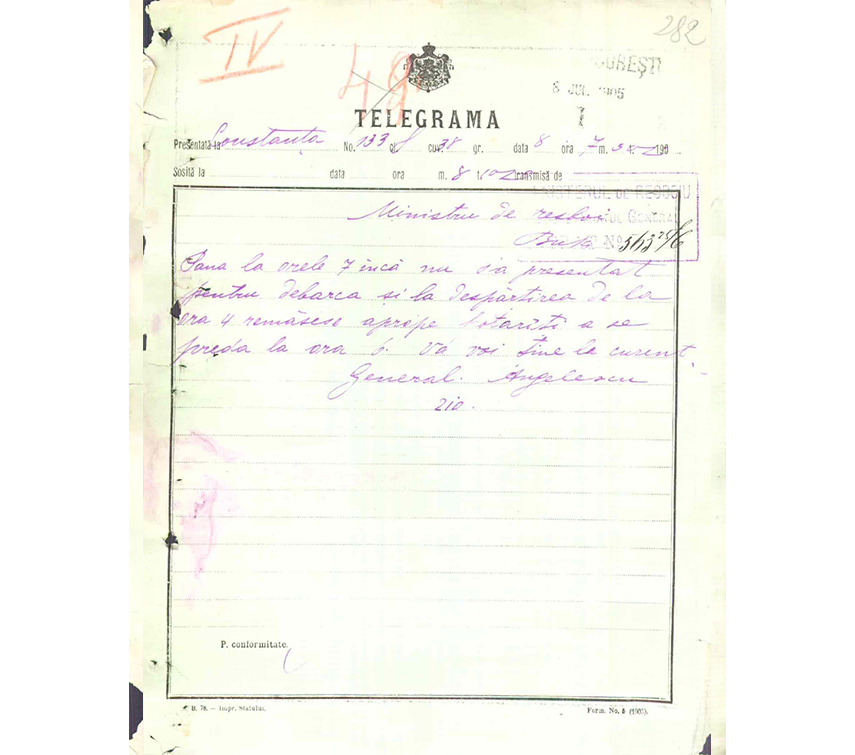 282
IV
48
BUCUREŞTI
8 JUL. 1905
TELEGRAMA
Presentată la Constanța No. 133 cuv. 38 gr. data 8 ora 7 m. 190
Sosită la data ora m. 8 Transmisă de
MINISTERUL DE RESBOIU
GENERAL
Ministru de resboi
No 563
Buk
Pana la orele 7 încă nu s'a presentat
pentru debarca si la despărtirea de la
ora 4 remăsese aprope hotarîti a se
preda la ora 6. Vă voi tine la curent.
General. Angelescu
210.
P. conformitate.
B. 78. — Impr. Statului.
Form. No. 5 (1905).